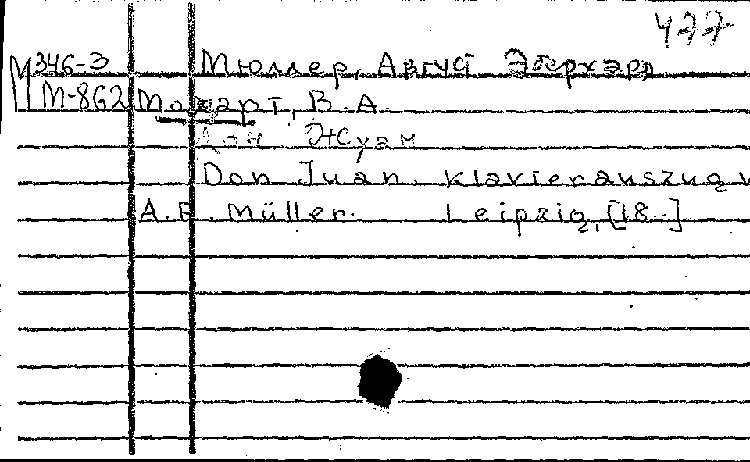 477
М346-3 Мюллер, Август Эберхард
М-862 Моцарт, В.А.
Дон Жуан
Don Juan. Klavierauszug v
A.E. Müller. Leipzig, [18-]